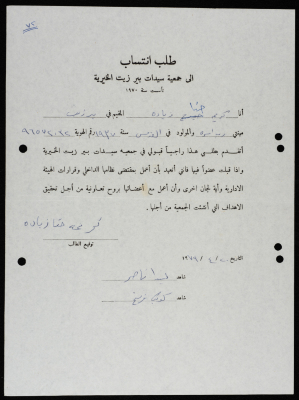 طلب انتساب
الى جمعية سيدات بير زيت الخيرية
تأسست سنة ١٩٧٠
أنا حنا زياده المقيم في بير زيت
مهنتي والمولود في القدس سنة ١٩٣٧ رقم الهوية
أتقدم بطلبي هذا راجياً قبولي في جمعية سيدات بير زيت الخيرية
وإذا قبلت عضواً فيها فاني أتعهد بأن أعمل بمقتضى نظامها الداخلي وقرارات الهيئة
الادارية وأية لجان اخرى وأن أعمل مع أعضائها بروح تعاونية من أجل تحقيق
الاهداف التي أنشئت الجمعية من أجلها .
حنا زياده
توقيع الطالب
التاريخ
شاهد
شاهد